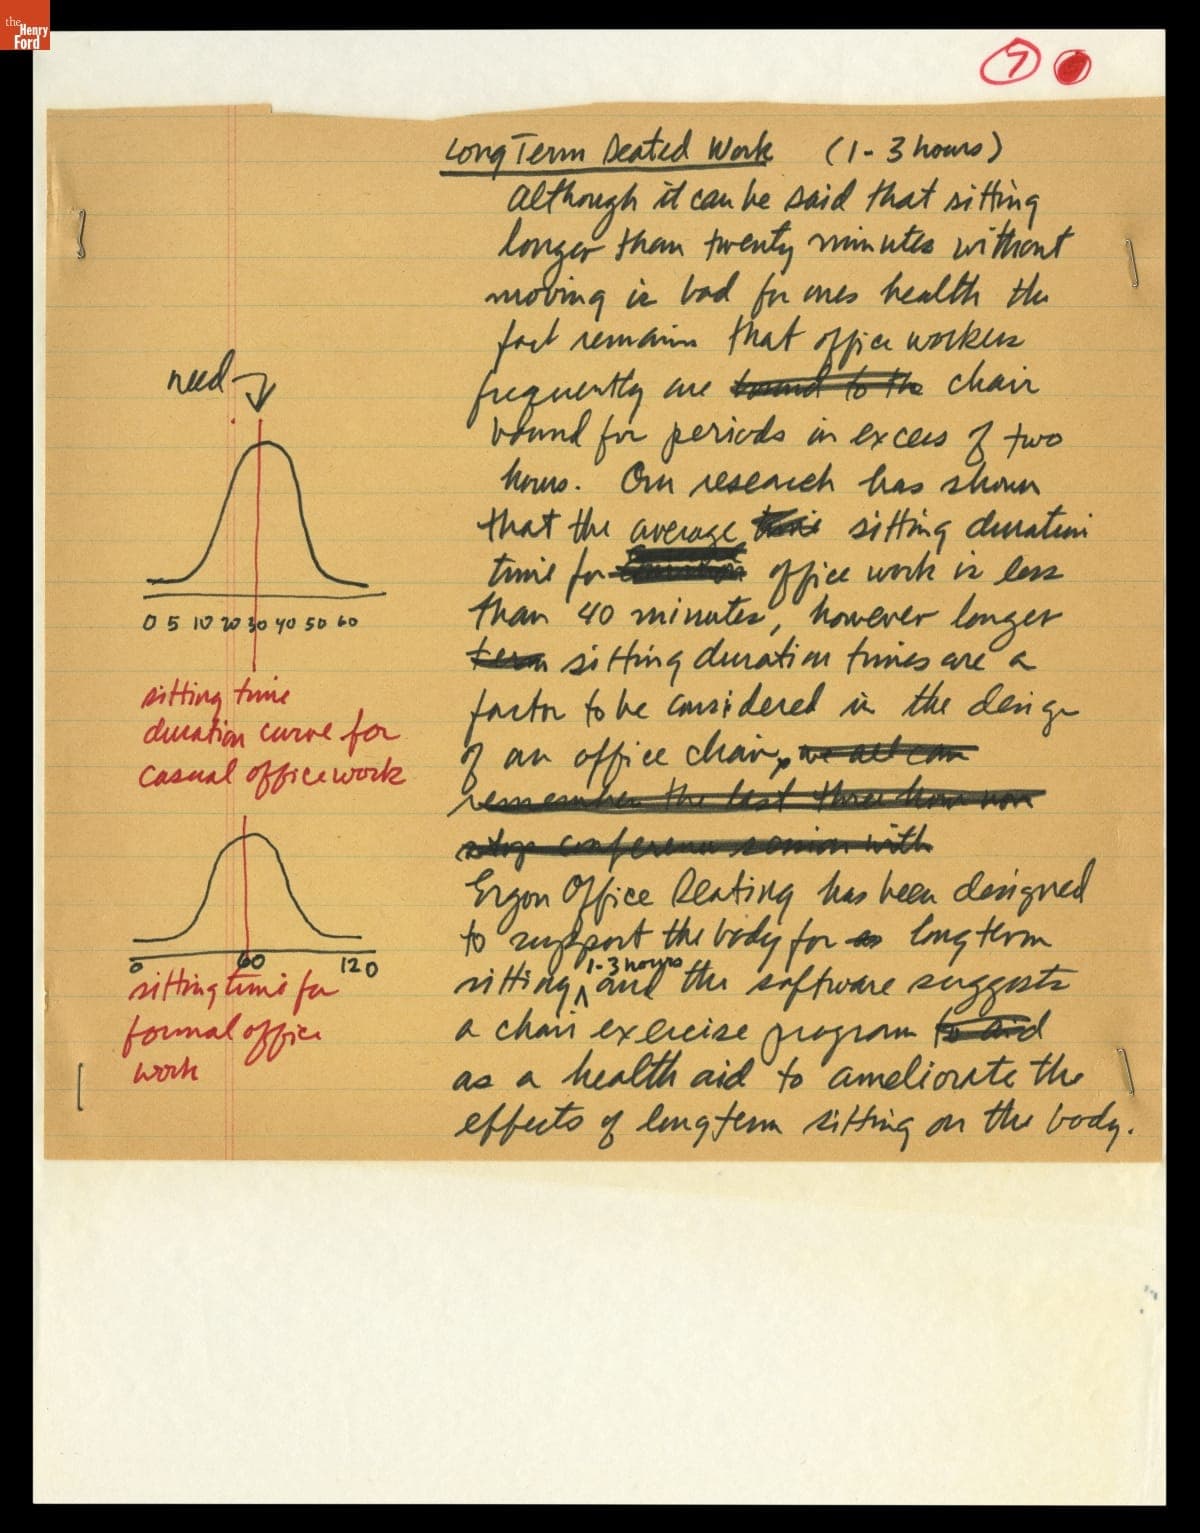 the
Henry
Ford
7
Long Term Seated Work (1-3 hours)
Although it can be said that sitting
longer than twenty minutes without
moving is bad for ones health the
fact remains that office workers
frequently are bound to the chair
bound for periods in excess of two
hours. Our research has shown
that the average time sitting duration
time for office work is less
than 40 minutes, however longer
term sitting duration times are a
factor to be considered in the design
of an office chair, we all can
remember the last three hour non
stop conference session with
Ergon Office Seating has been designed
to support the body for as long term
sitting 1-3 hours and the software suggests
a chair exercise program to aid
as a health aid to ameliorate the
effects of long term sitting on the body.
need
0 5 10 20 30 40 50 60
sitting time
duration curve for
casual office work
0 60 120
sitting time for
formal office
work